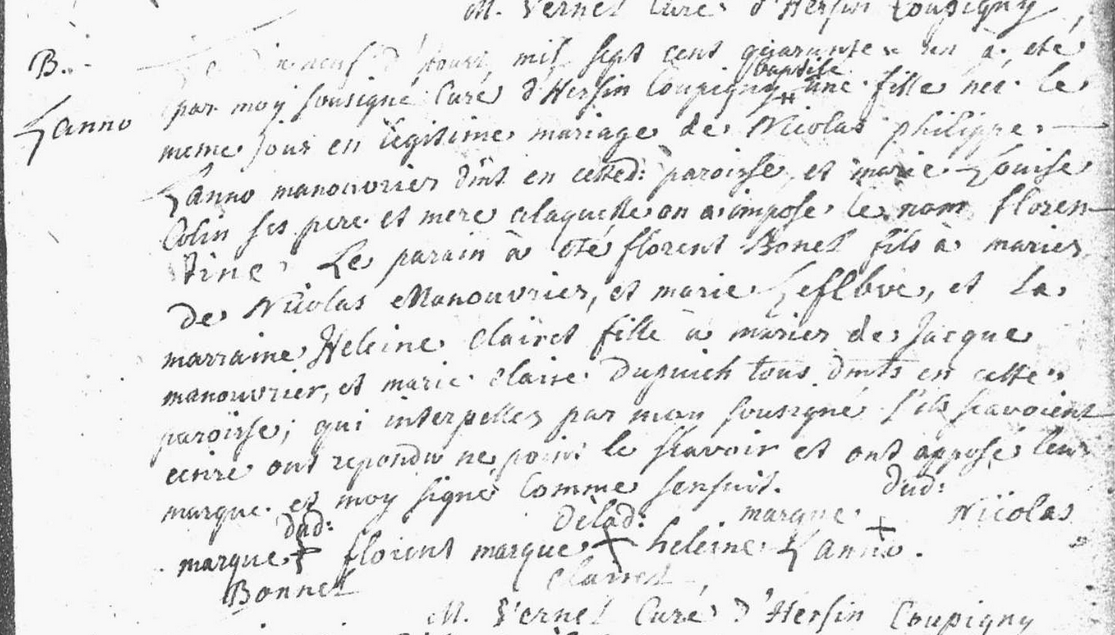 M. Vernel Curé d'Hersin Coupigny
B.
Lanno
Le dix neuf d'aoust mil sept cent quarante un à eté
par moy sousigné Curé d'Hersin Coupigny baptisé une fille née le
meme jour en legitime mariage de Nicolas philippe
Lanno manouvrier dmt en cetted: paroisse, et marie Louise
Colin ses pere et mere alaquelle on a imposé le nom floren-
tine Le parain à eté florent Bonel fils à marier
de Nicolas Manouvrier, et marie Lefebve, et La
marraine Heleine Clairet fille à marier de Jacque
manouvrier, et marie claire Dupuich tous dmts en cette
paroisse; qui interpellez par moy sousigné s'ils scavoient
ecrire ont repondu ne point le scavoir et ont apposé leur
marque et moy signé Comme sensuit.
dud: delad: marque dud: Nicolas
marque + florent marque + heleine + Lanno.
Bonnel Clairet
M. Vernel Curé d'Hersin Coupigny